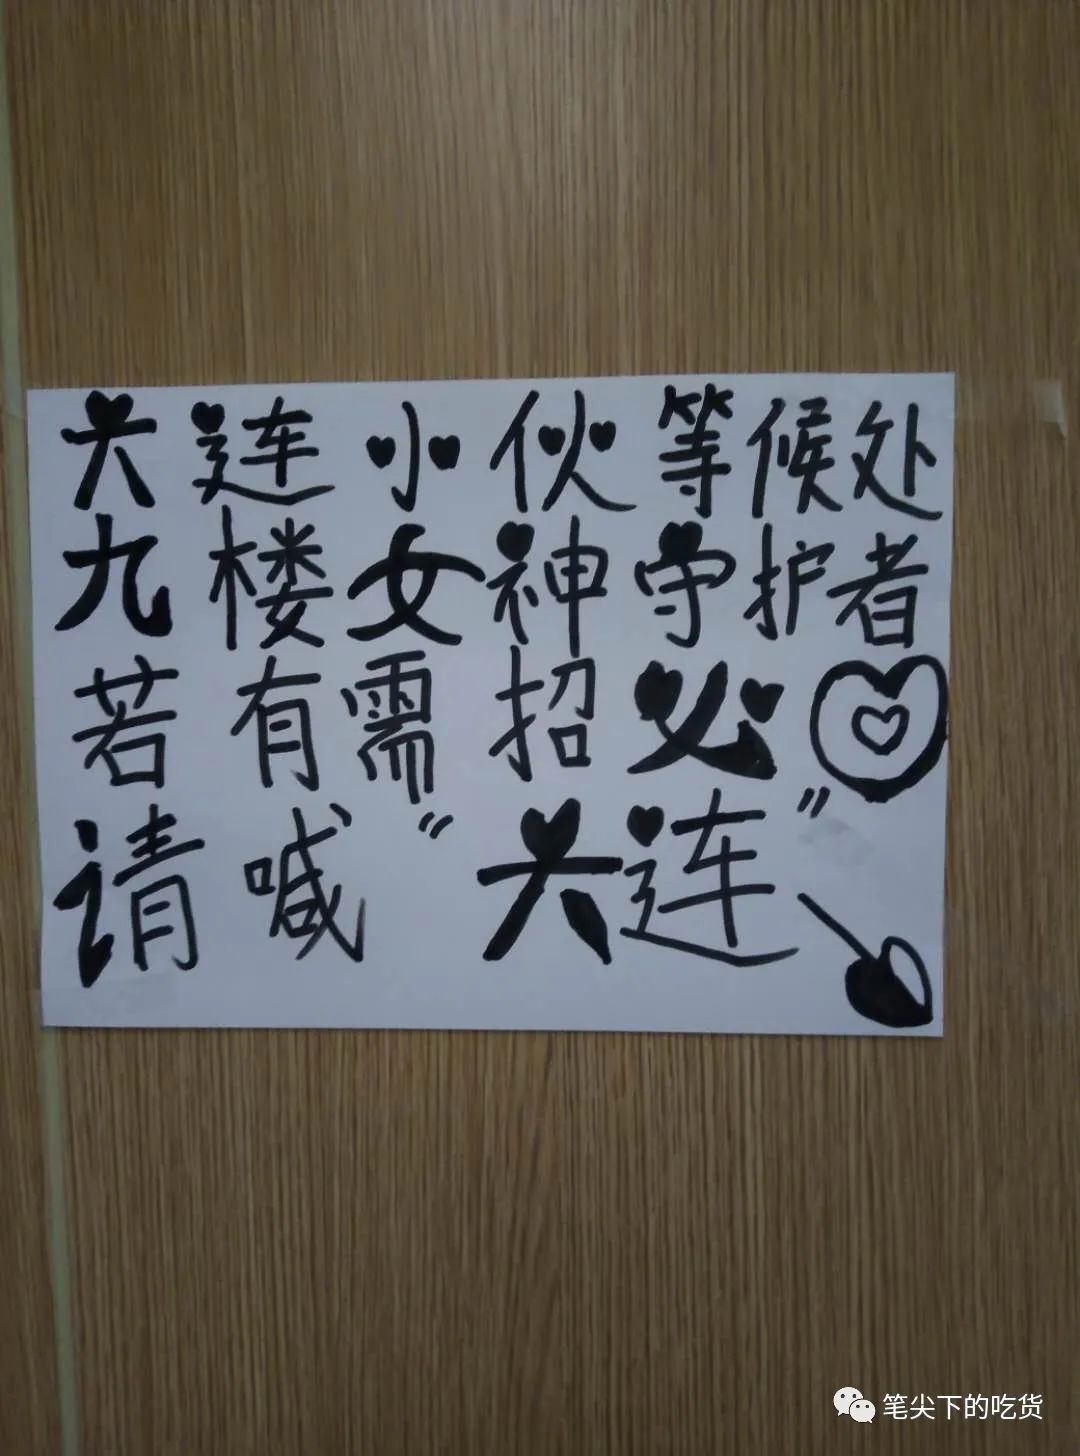 大连小伙等候处
九楼女神守护者
若有需招必回
请喊“大连”
笔尖下的吃货